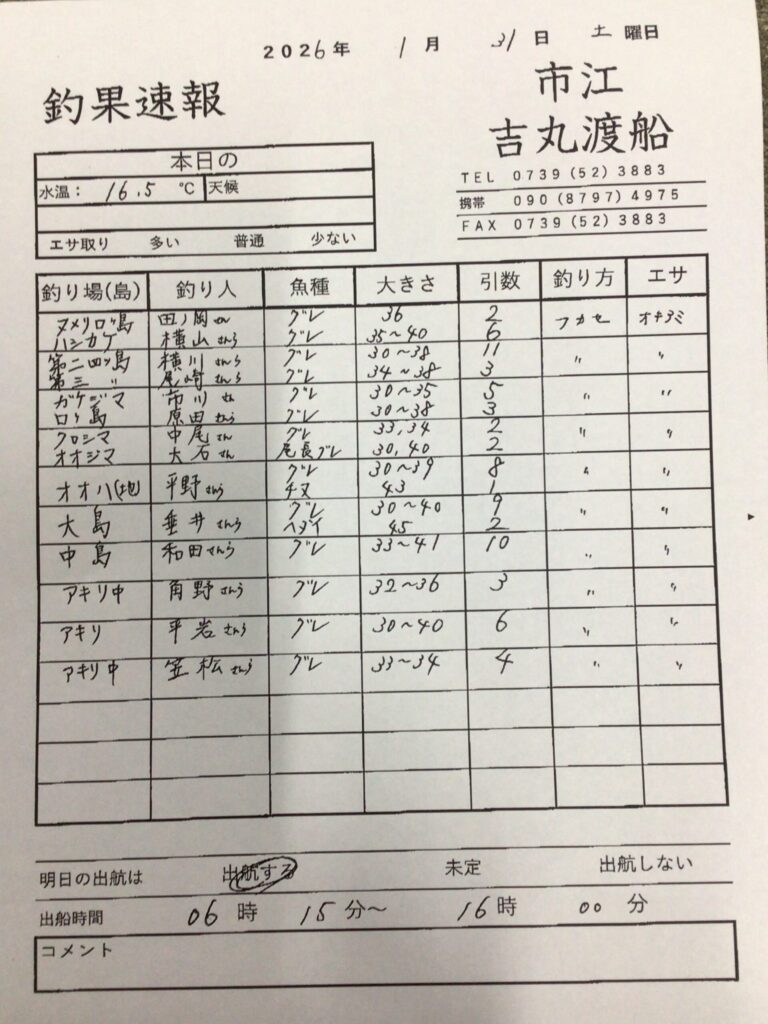 2026年 1月 31日 土曜日
釣果速報
市江
吉丸渡船
TEL 0739(52)3883
携帯 090(8797)4975
FAX 0739(52)3883
本日の
水温: 16.5 ℃ 天候
エサ取り 多い 普通 少ない
釣り場(島) 釣り人 魚種 大きさ 引数 釣り方 エサ
ヌメリロ島 田ノ岡さん グレ 36 2 フカセ オキアミ
ハシカケ 横山さんら グレ 35~40 6
第二四ツ島 横川さんら グレ 30~38 11 〃 〃
第三 〃 尾崎さんら グレ 34~38 3
ガケジマ 市川さん グレ 30~35 5 〃 〃
ロク島 原田さんら グレ 30~38 3
クロシマ 中尾さん グレ 33,34 2 〃 〃
オオジマ 大石さん 尾長グレ 30,40 2
グレ 30~39 8 〃 〃
オオハ(地) 平野さんら チヌ 43 1
大島 垂井さんら グレ 30~40 9 〃 〃
ヘダイ 45 2
中島 和田さんら グレ 33~41 10 〃 〃
アキリ中 角野さんら グレ 32~36 3 〃 〃
アキリ 平岩さんら グレ 30~40 6 〃 〃
アキリ中 笠松さんら グレ 33~34 4 〃 〃
明日の出航は 出航する 未定 出航しない
出船時間 06時 15分~ 16時 00分
コメント